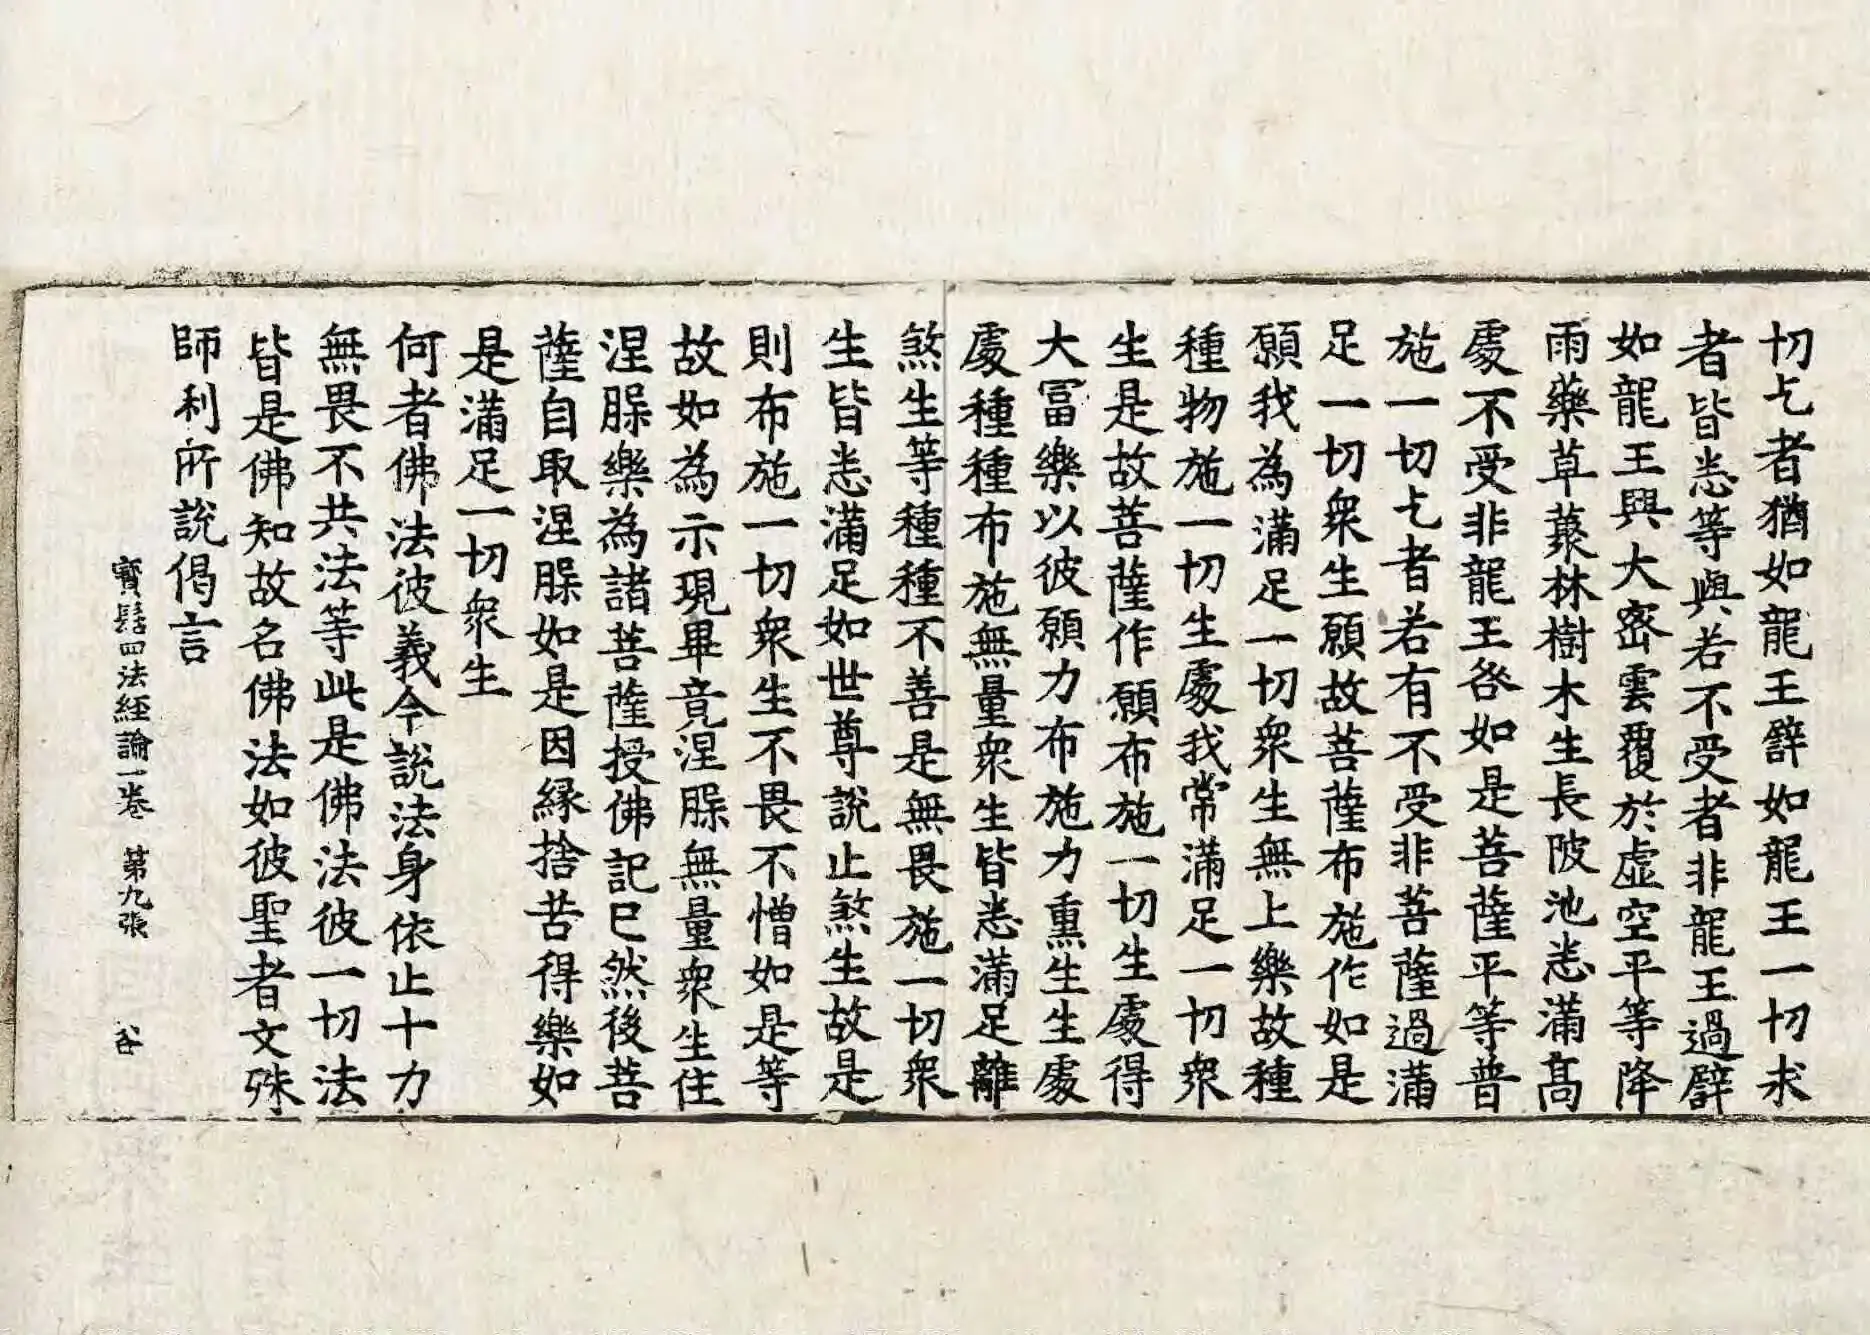 切乞者猶如龍王譬如龍王一切求
者皆悉等與若不受者非龍王過譬
如龍王興大密雲覆於虛空平等降
雨藥草藂林樹木生長陂池悉滿高
處不受非龍王咎如是菩薩平等普
施一切乞者若有不受非菩薩過滿
足一切衆生願故菩薩布施作如是
願我為滿足一切衆生無上樂故種
種物施一切生處我常滿足一切衆
生是故菩薩作願布施一切生處得
大冨樂以彼願力布施力熏生生處
處種種布施無量衆生皆悉滿足離
煞生等種種不善是無畏施一切衆
生皆悉滿足如世尊說止煞生故是
則布施一切衆生不畏不憎如是等
故如為示現畢竟涅槃無量衆生住
涅槃樂為諸菩薩授佛記已然後菩
薩自取涅槃如是因緣捨苦得樂如
是滿足一切衆生
何者佛法彼義今說法身依止十力
無畏不共法等此是佛法彼一切法
皆是佛知故名佛法如彼聖者文殊
師利所說偈言
寳髻四法經論一卷 第九張